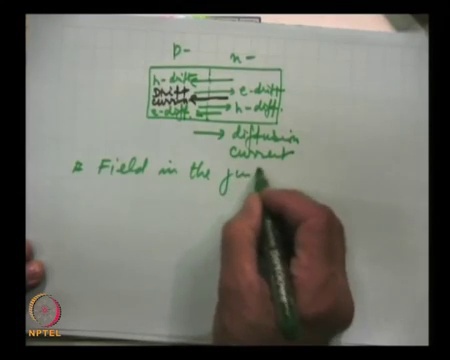 p- n-
h-drift
Drift e-drift
current h-diff.
e-diff.
diffusion
current
Field in the jun
NPTEL